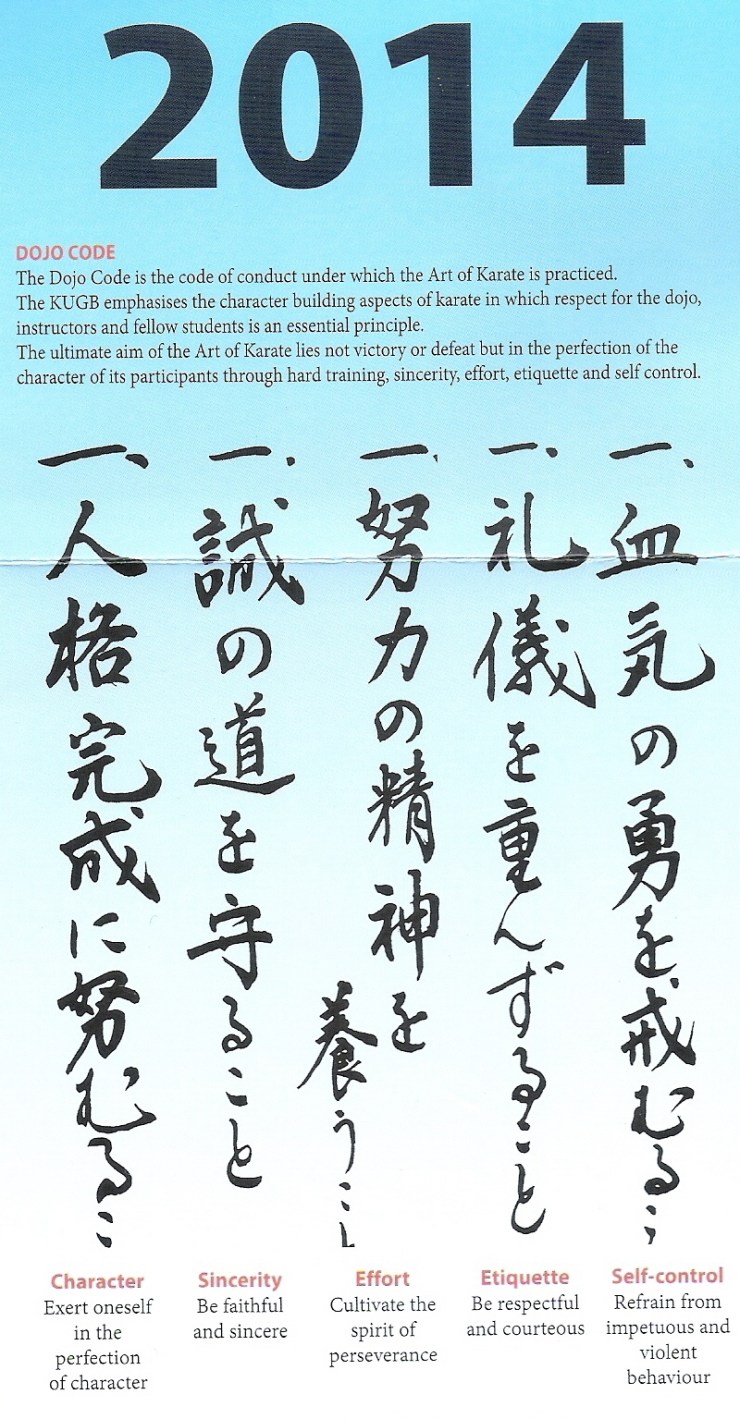 2014
DOJO CODE
The Dojo Code is the code of conduct under which the Art of Karate is practiced.
The KUGB emphasises the character building aspects of karate in which respect for the dojo,
instructors and fellow students is an essential principle.
The ultimate aim of the Art of Karate lies not victory or defeat but in the perfection of the
character of its participants through hard training, sincerity, effort, etiquette and self control.
一、人格完成に努むるこ
一、誠の道を守ること
一、努力の精神を
養うこと
一、礼儀を重んずること
一、血気の勇を戒むるこ
Character
Exert oneself
in the
perfection
of character
Sincerity
Be faithful
and sincere
Effort
Cultivate the
spirit of
perseverance
Etiquette
Be respectful
and courteous
Self-control
Refrain from
impetuous and
violent
behaviour